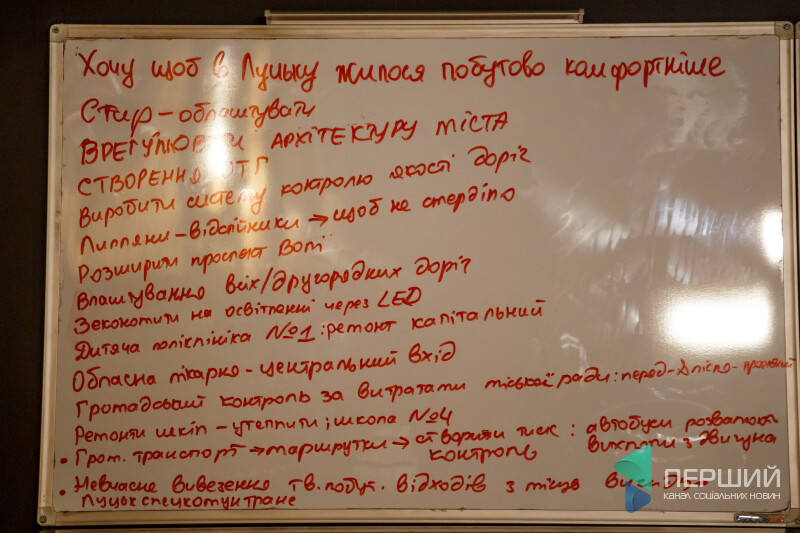 Хочу щоб в Луцьку жилося побутово комфортніше
Стир – облаштувати
ВРЕГУЛЮВАТИ АРХІТЕКТУРУ МІСТА
СТВОРЕННЯ ОТГ
Виробити систему контролю якості доріг
Липляни – відстійники → щоб не смерділо
Розширити проспект Волі
Влаштування всіх/другорядних доріг
Зекономити на освітленні через LED
Дитяча поліклініка №1: ремонт капітальний
Обласна лікарня – центральний вхід
Громадський контроль за витратами міської ради: перед-
Ремонти шкіл – утеплити; школа №4
• Гром. транспорт → маршрутки → створити тиск: автобуси розвалюхи
контроль вихлопи з двигуна
• Невчасне вивезення тв. побут. відходів з місць
Луцькспецкомунтранс
ПЕРШИЙ
КАНАЛ СОЦІАЛЬНИХ НОВИН